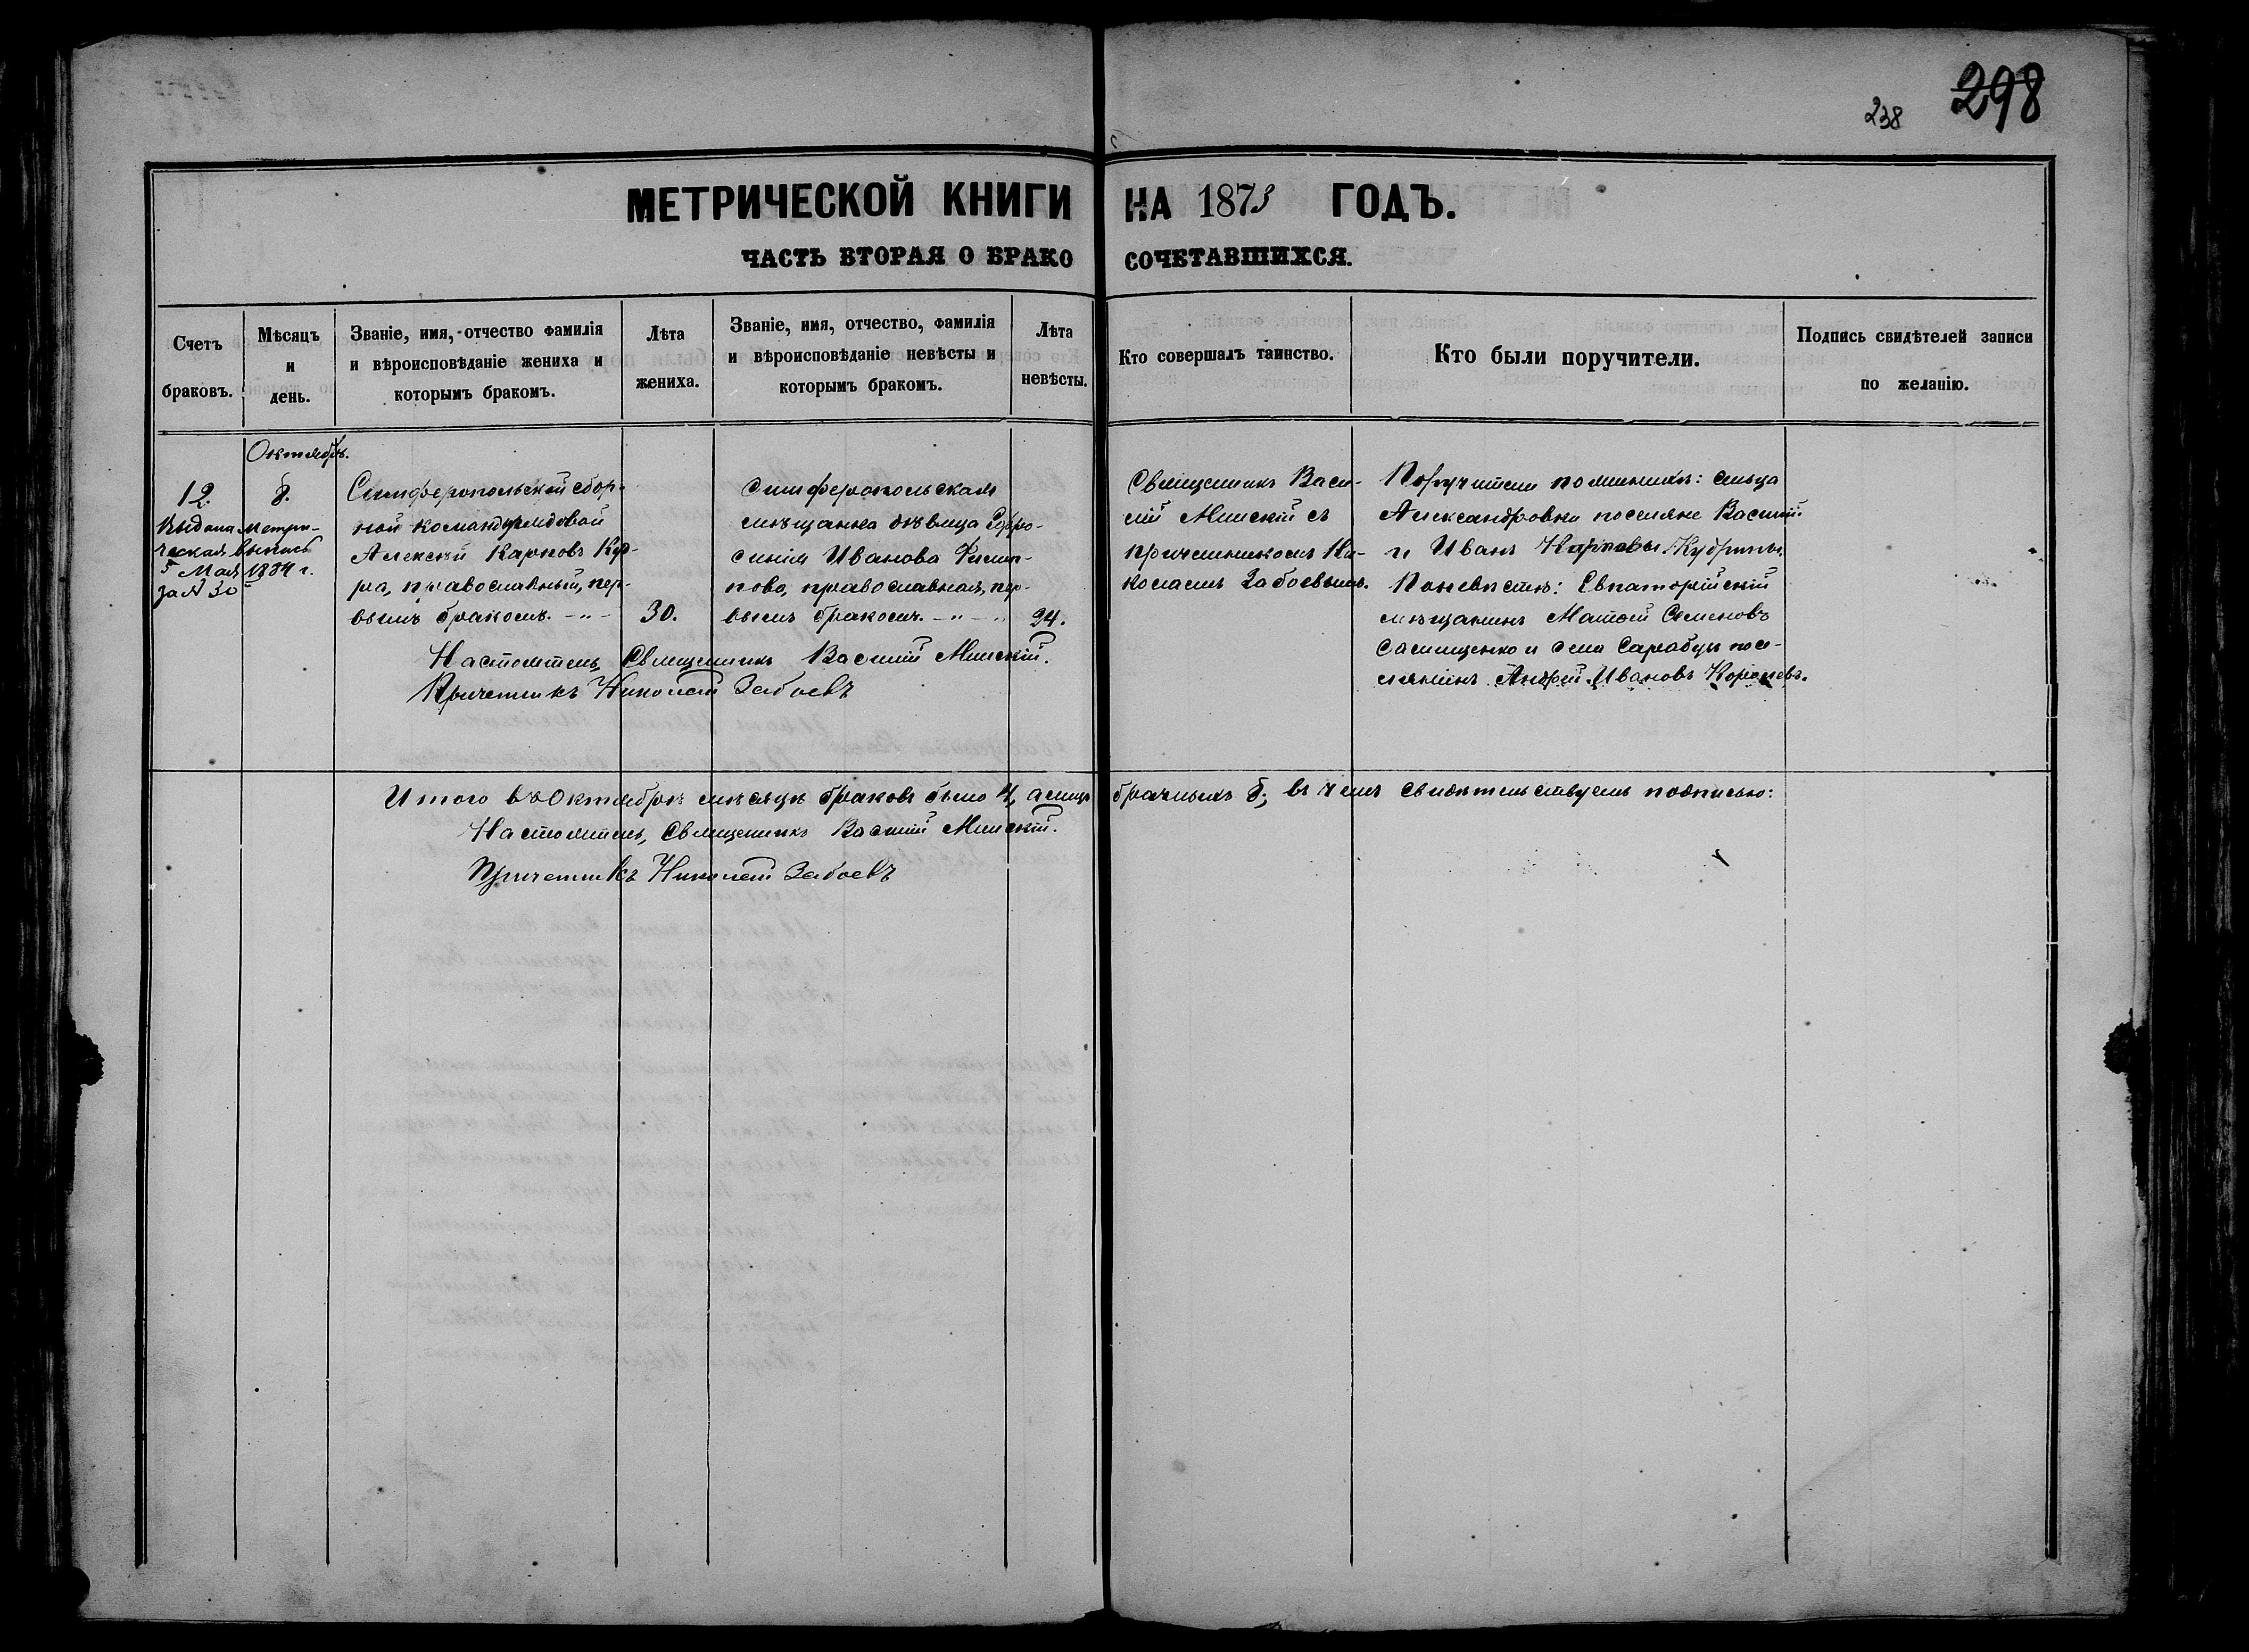 298
238
МЕТРИЧЕСКОЙ КНИГИ НА 1873 ГОДЪ.
ЧАСТЬ ВТОРАЯ О БРАКОСОЧЕТАВШИХСЯ.
Счетъ браковъ.
Мѣсяцъ и день.
Званіе, имя, отчество фамилія и вѣроисповѣданіе жениха и которымъ бракомъ.
Лѣта жениха.
Званіе, имя, отчество, фамилія и вѣроисповѣданіе невѣсты и которымъ бракомъ.
Лѣта невѣсты.
Кто совершалъ таинство.
Кто были поручители.
Подпись свидѣтелей записи по желанію.
Октябрь.
12.
8.
Выдана метри-
ческая выпись
5 Мая 1884 г.
за № 30
Симферопольской сбор-
ной команды рядовой
Алексѣй Карповъ Куд-
ра, православный, пер-
вымъ бракомъ.
30.
Симферопольская
мѣщанка дѣвица Ефро-
синія Иванова Филип-
пова, православная, пер-
вымъ бракомъ.
24.
Священникъ Васи-
лій Минскій съ
причетникомъ Ни-
колаемъ Забоевымъ.
Поручители по женихѣ: сельца
Александровки поселяне Василій
и Иванъ Карповы Кудрины.
По невѣстѣ: Евпаторійскій
мѣщанинъ Матвѣй Семеновъ
и села Сарабузъ посе-
лянинъ Андрей Ивановъ Королевъ.
Настоятель, Священникъ Василій Минскій.
Причетникъ Николай Забоевъ
Итого въ Октябрѣ мѣсяцѣ браковъ было 4, а лицъ брачныхъ 8; въ чемъ свидѣтельствуемъ подписью:
Настоятель, Священникъ Василій Минскій.
Причетникъ Николай Забоевъ